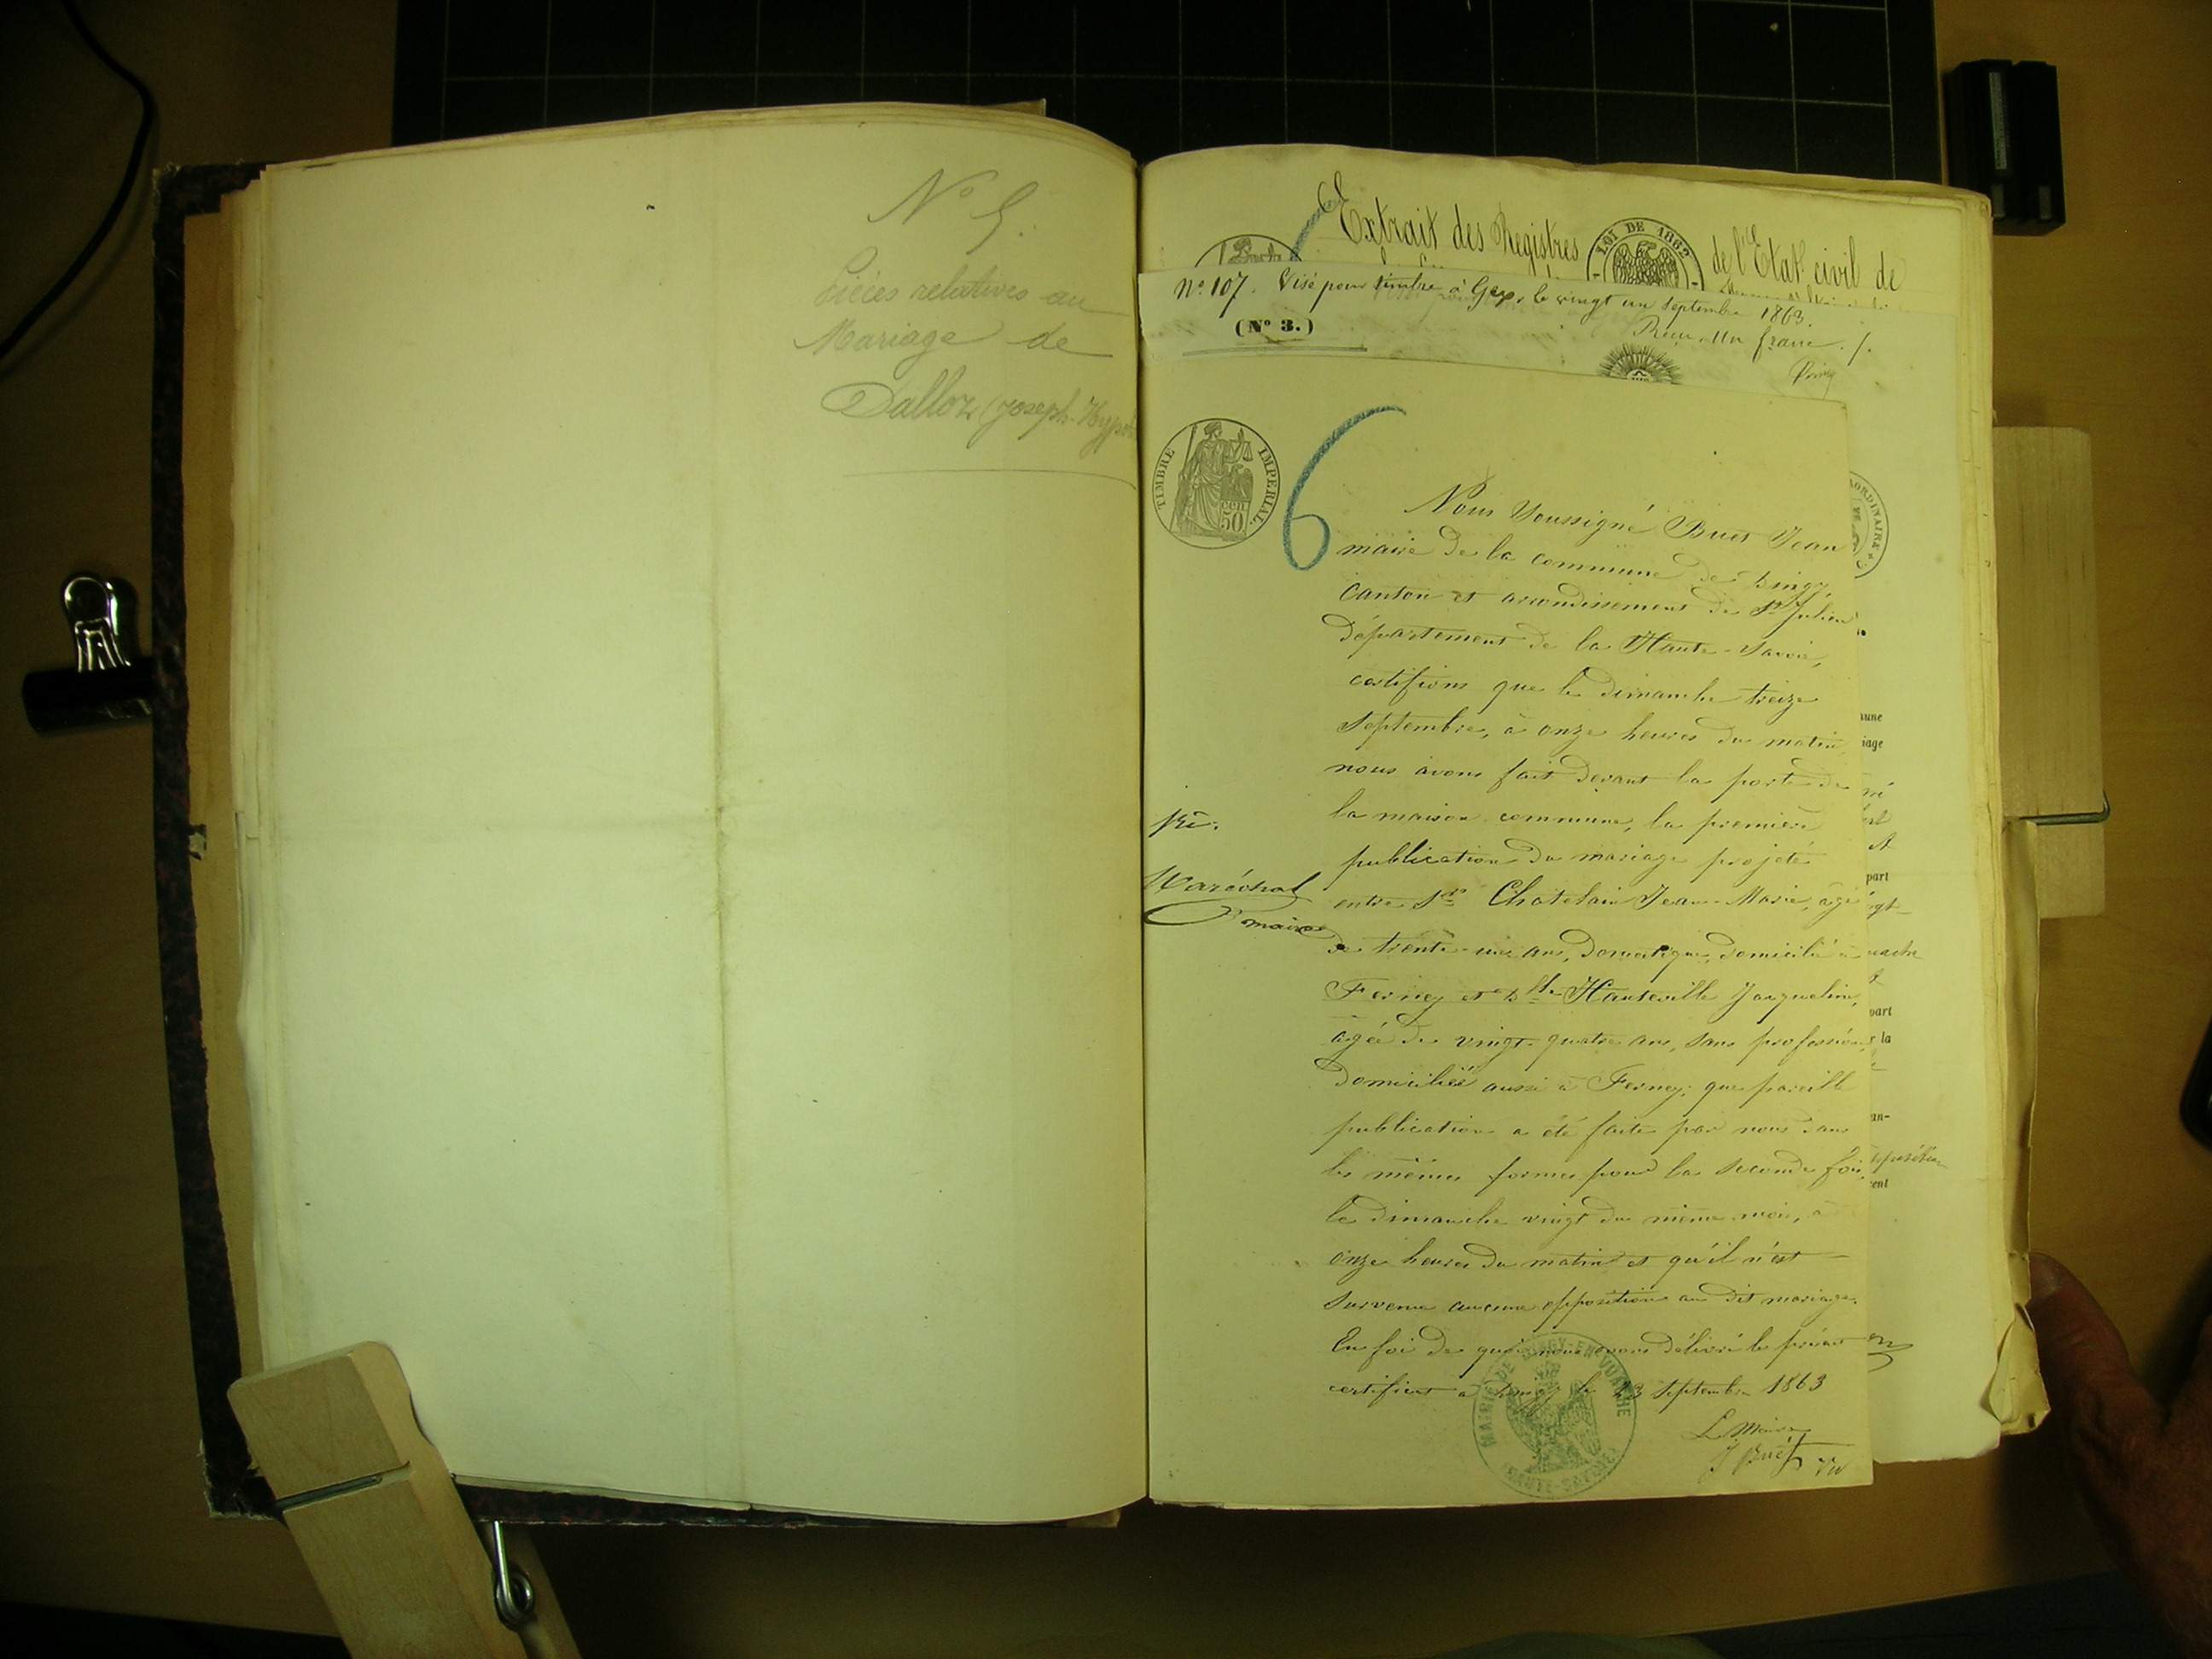 N° 5.
Pièces relatives au
Mariage de
Dalloz (Joseph-Hypol
Extrait des Registres
LOI DE 1862
de l'Etat civil de
N° 107. Visé pour timbre à Gex, le vingt un septembre 1863.
(N° 3.)
Reçu, un franc.
TIMBRE IMPERIAL
50
cen
6
Nous soussigné Buet Jean
maire de la commune de Dingy,
canton et arrondissement de St Julien
département de la Haute-Savoie,
certifions que le dimanche treize
septembre, à onze heures du matin,
nous avons fait devant la porte de
la maison commune, la première
publication du mariage projeté
entre Sr Chatelain Jean-Marie, âgé
de trente-un ans, domestique, domicilié à
Ferney et Dlle Hauteville Jacqueline,
âgée de vingt-quatre ans, sans profession,
domiciliée aussi à Ferney; que pareille
publication a été faite par nous dans
les mêmes formes pour la seconde fois,
le dimanche vingt du même mois, à
onze heures du matin et qu'il n'est
survenu aucune opposition au dit mariage.
En foi de quoi nous avons délivré le présent
certificat à Dingy le 23 septembre 1863
Le Maire
J Buet
MAIRIE DE DINGY-EN-VUACHE
HAUTE-SAVOIE
Maréchal
maire
ORDINAIRE
une
iage
part
part
la